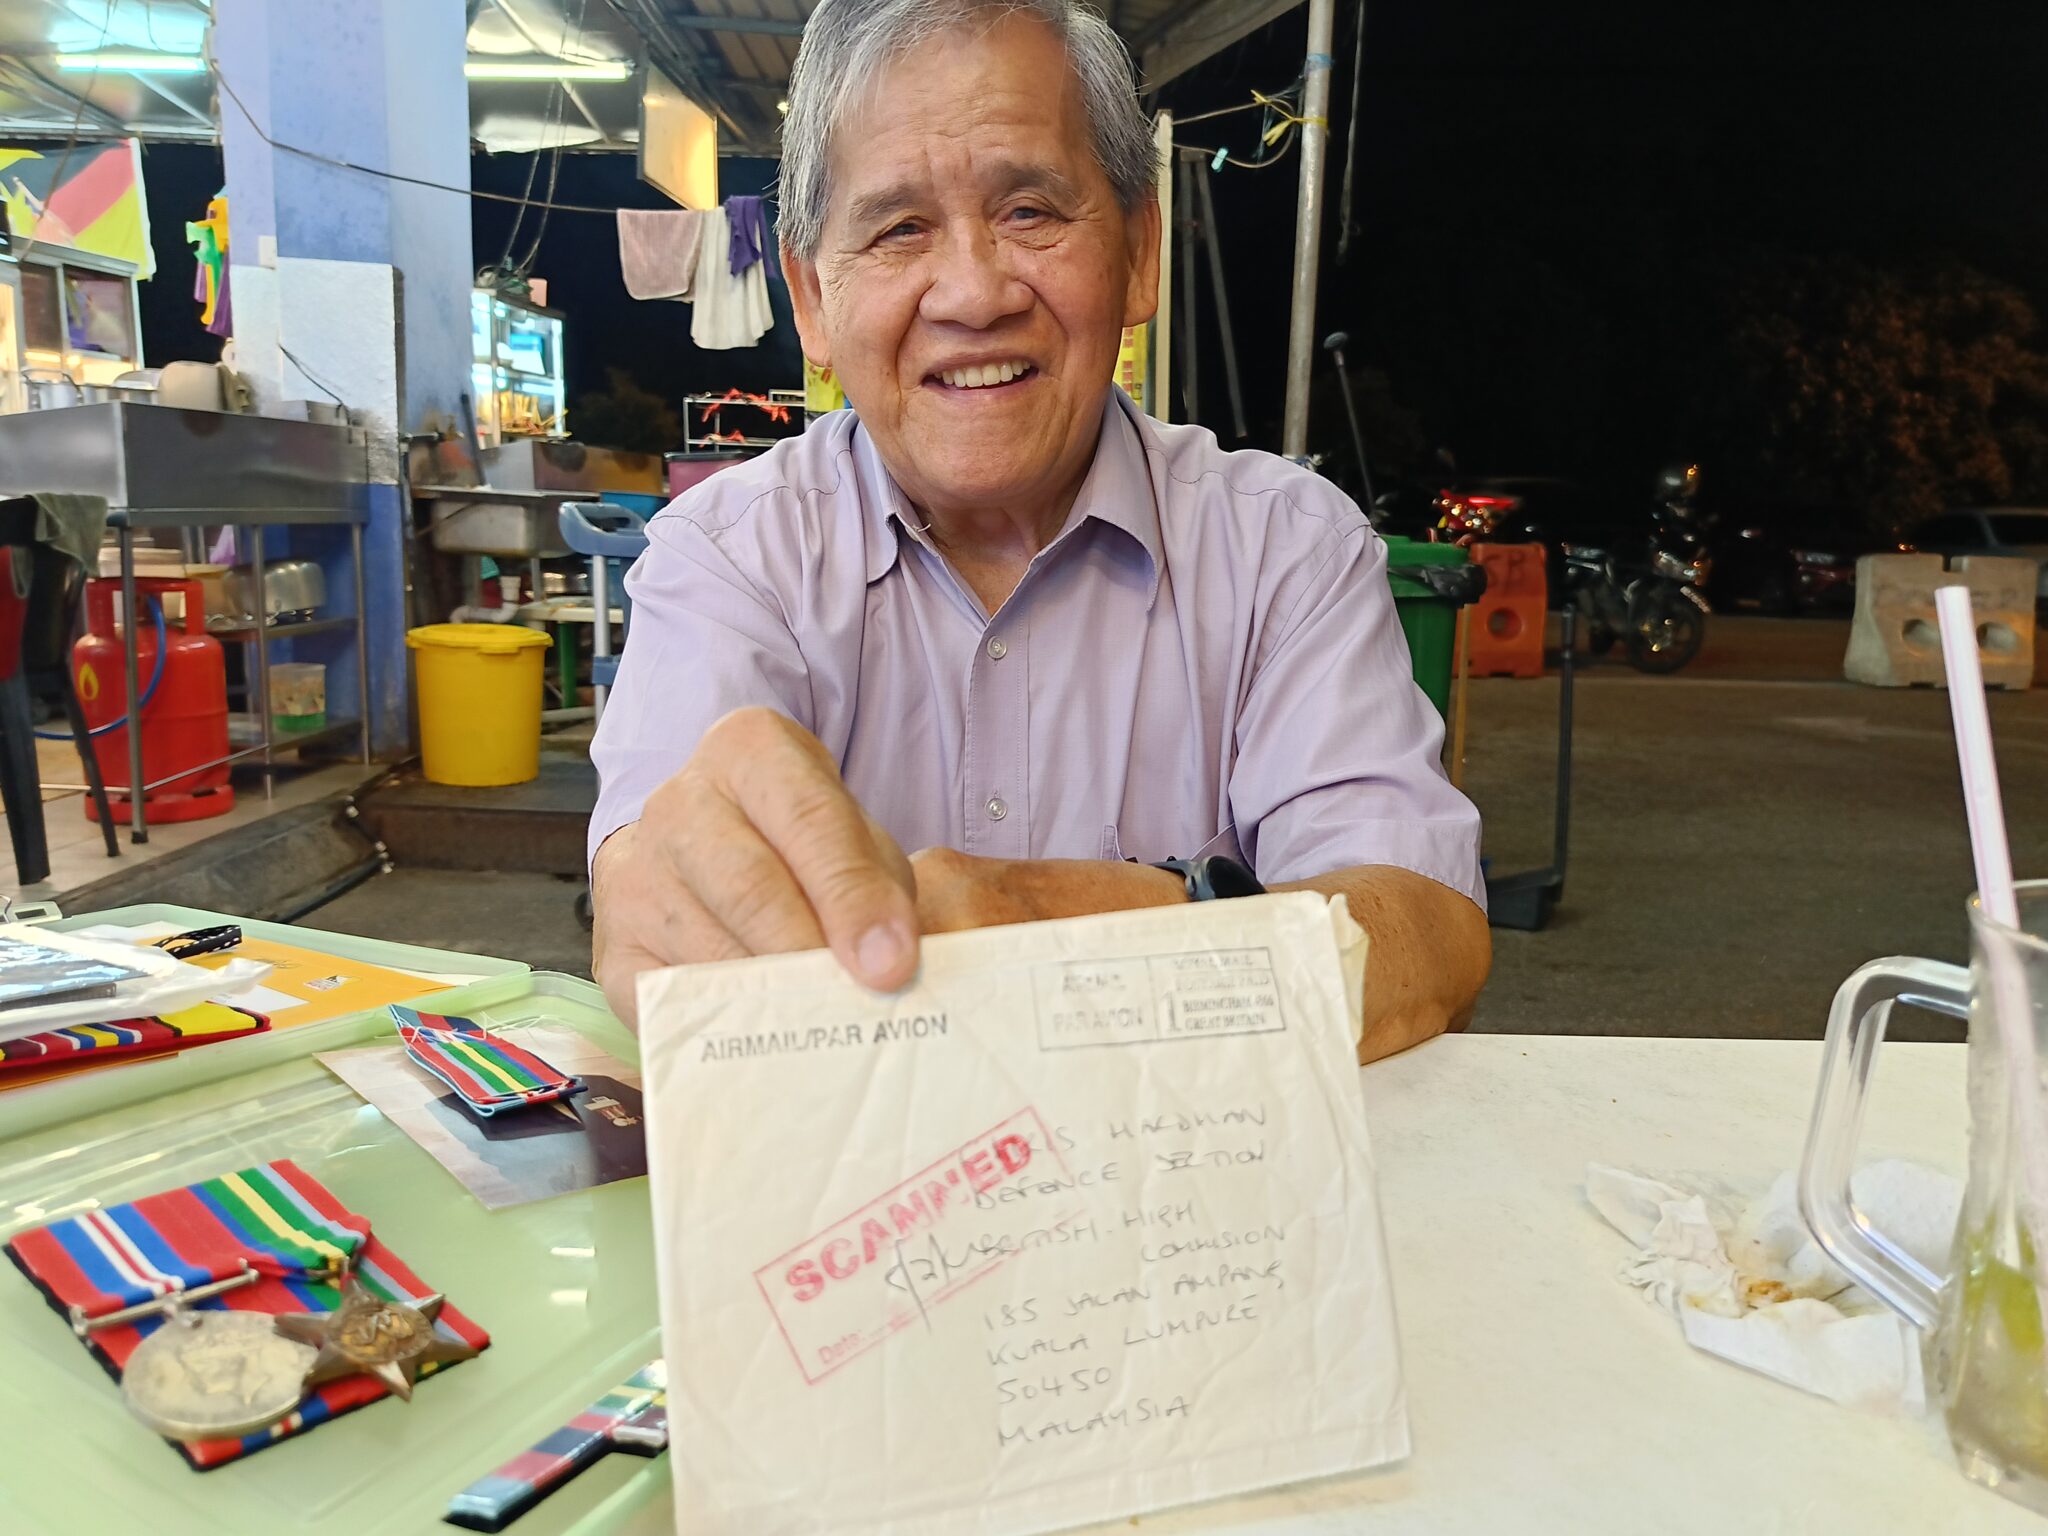 AIRMAIL/PAR AVION
PAR AVION
ROYAL MAIL
POSTAGE PAID
1
BIRMINGHAM
GREAT BRITAIN
SCANNED
Date:
DEFENCE SECTION
BRITISH HIGH
COMMISSION
185 JALAN AMPANG
KUALA LUMPURE
50450
MALAYSIA
SB